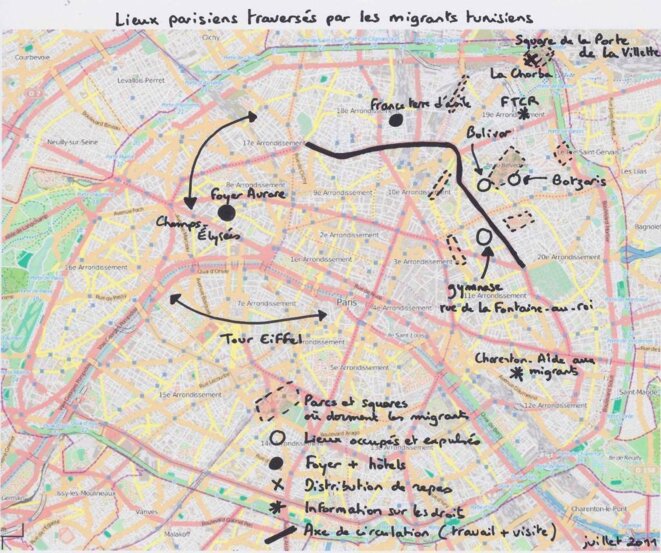 Lieux parisiens traversés par les migrants tunisiens
Square de la Porte
de la Villette
La Chorba
France terre d'asile
FTCR
Bolivar
Botzaris
Foyer Aurore
Champs-
Élysées
gymnase
rue de la Fontaine-au-roi
Tour Eiffel
Charenton. Aide aux
migrants
Parcs et squares
où dorment les migrants
Lieux occupés et expulsés
Foyer + hôtels
Distribution de repas
Information sur les droit
Axe de circulation (travail + visite)
juillet 2011
Clichy
Courbevoie
Levallois-Perret
Neuilly-sur-Seine
17e Arrondissement
18e Arrondissement
19e Arrondissement
8e Arrondissement
9e Arrondissement
10e Arrondissement
2e Arrondissement
1er Arrondissement
3e Arrondissement
20e Arrondissement
11e Arrondissement
7e Arrondissement
Paris
4e Arrondissement
5e Arrondissement
15e Arrondissement
12e Arrondissement
Les Lilas
Bagnolet
Saint-Mandé
Issy-les-Moulineaux
Vanves
Malakoff
Charenton-le-Pont